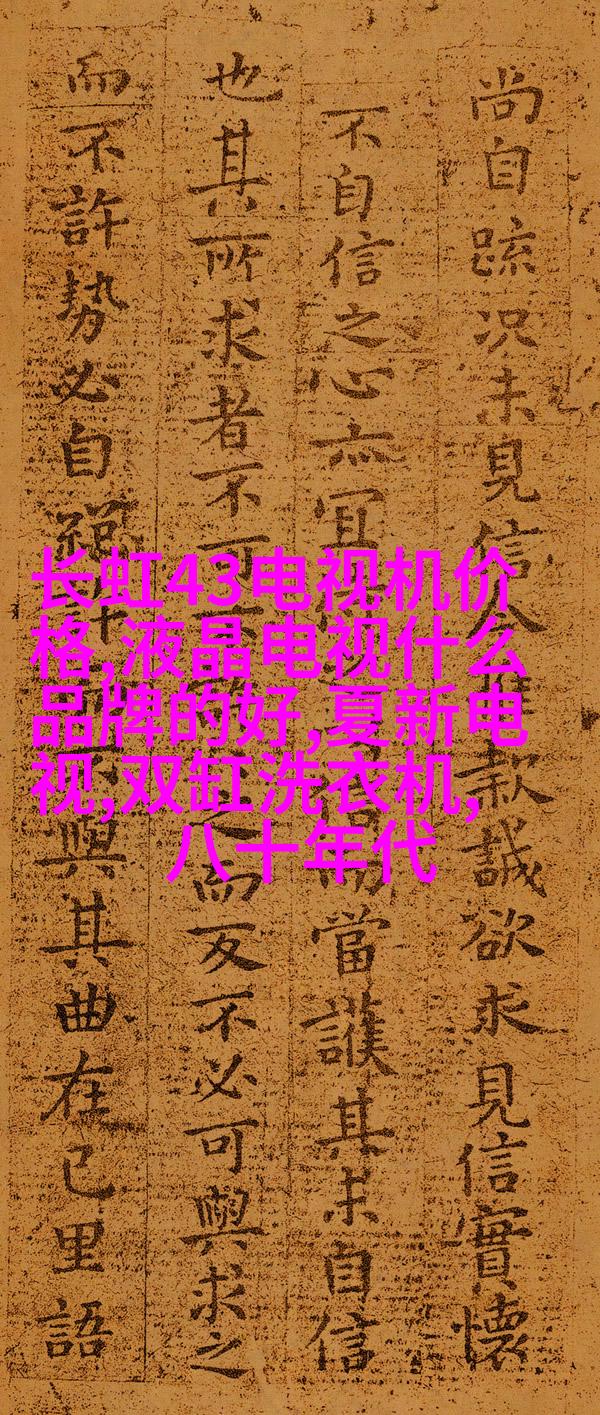 尚自疏况未見信今款誠欲求見信實懷
不自信之心亦宜當護其未自信
也其所求者不可之而反不必可與求之
而不許勢必自絕許與其曲在己里語
长虹43电视机价
格,液晶电视什么
品牌的好,夏新电
视,双缸洗衣机,
八十年代